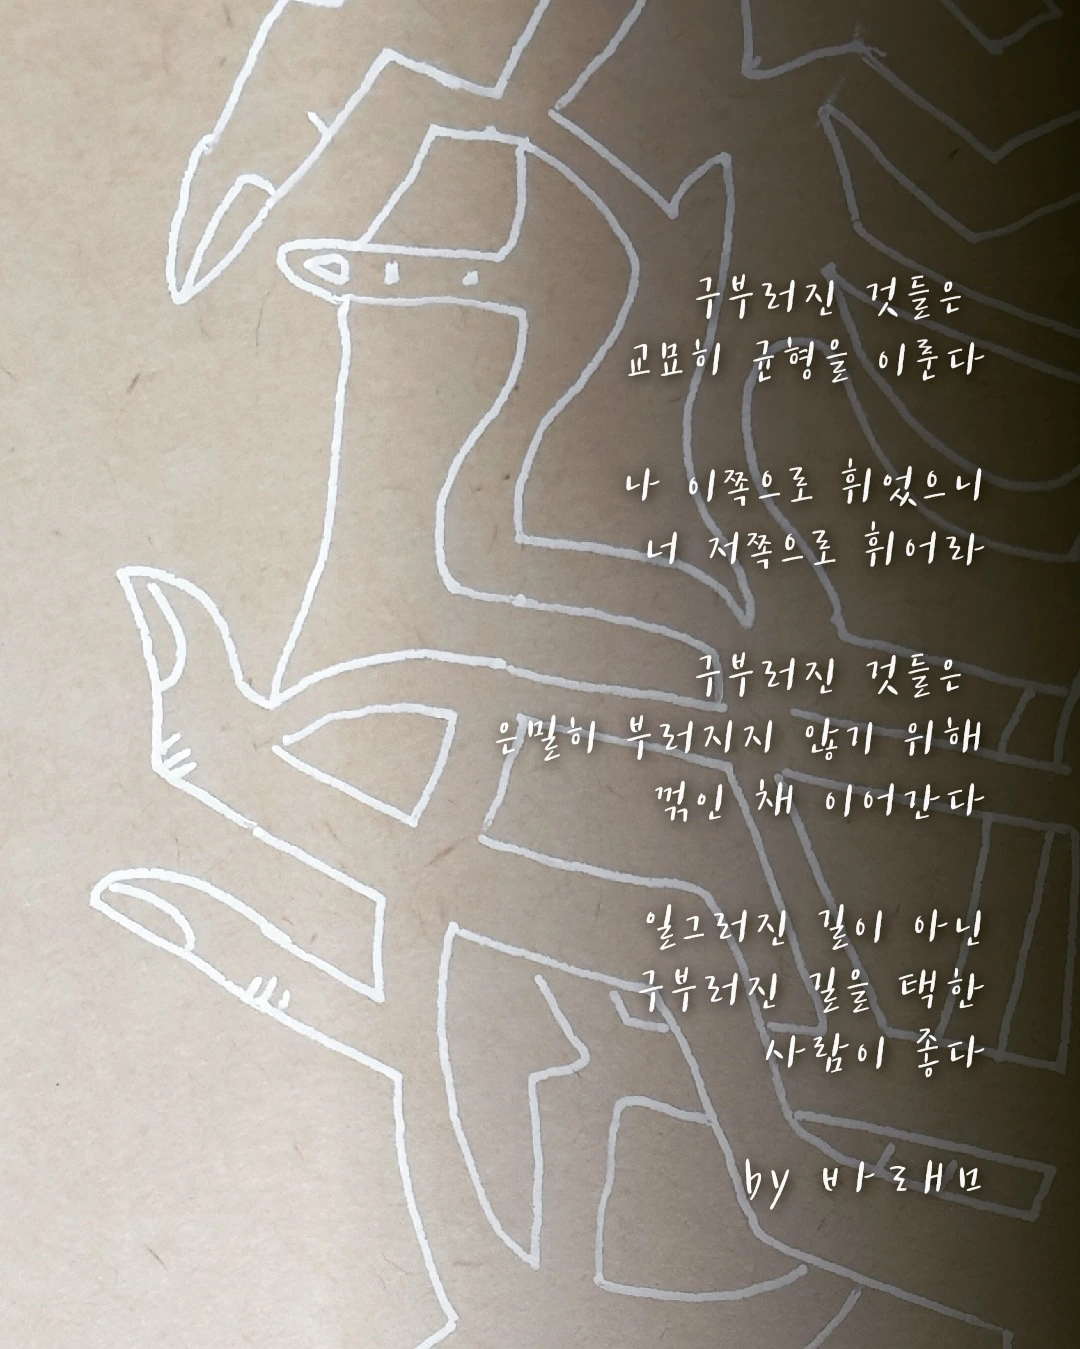 구부러진 것들은
교묘히 균형을 이룬다
나 이쪽으로 휘었으니
너 저쪽으로 휘어라
구부러진 것들은
은밀히 부러지지 않기 위해
꺾인 채 이어간다
일그러진 길이 아닌
구부러진 길을 택한
사람이 좋다
by 바래므